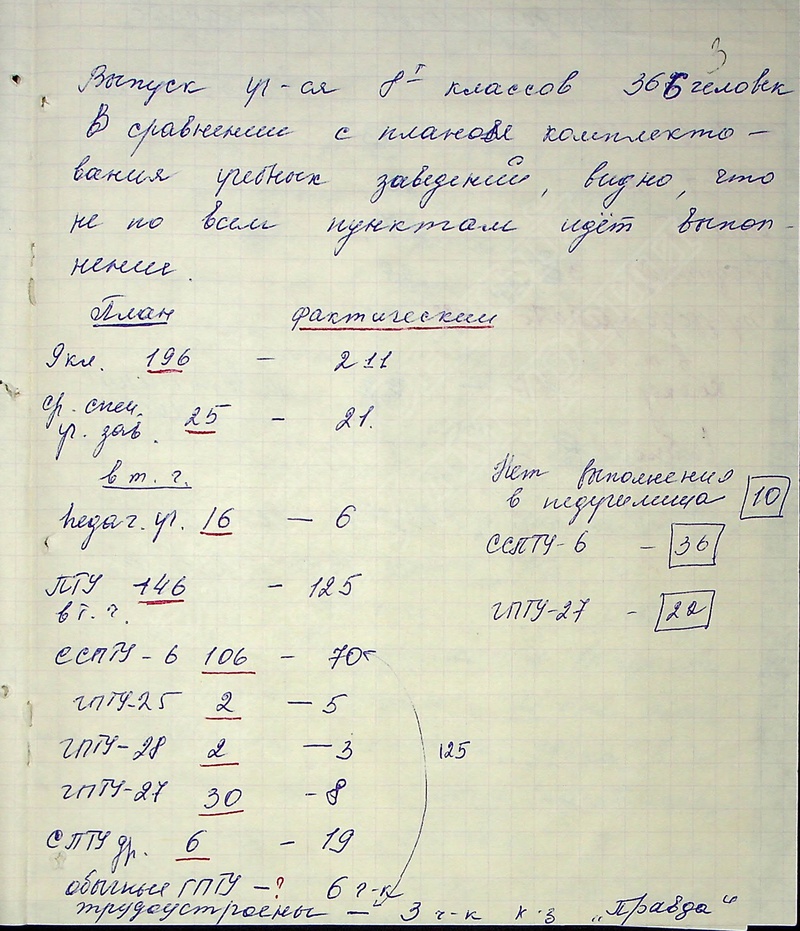 3
Выпуск уч-ся 8ˣ классов 366 человек
В сравнении с планом комплекто-
вания учебных заведений, видно, что
не по всем пунктам идёт выпол-
нение.
План Фактически
9 кл. 196 — 211
ср. спец.
уч. зав. 25 — 21.
в т. ч.
педаг. уч. 16 — 6
Нет выполнения
в педучилища 10
ССПТУ-6 — 36
ПТУ 146 — 125
в т. ч.
ГПТУ-27 — 22
ССПТУ-6 106 — 70
ГПТУ-25 2 — 5
ГПТУ-28 2 — 3
125
ГПТУ-27 30 — 8
СПТУ др. 6 — 19
обычные ГПТУ —? 6 ч-к
трудоустроены — 3 ч-к к-з „Правда“